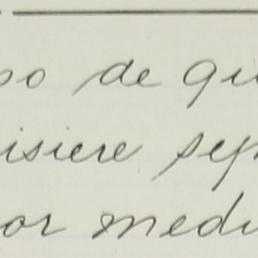 po de qu
isiere sep
or medi